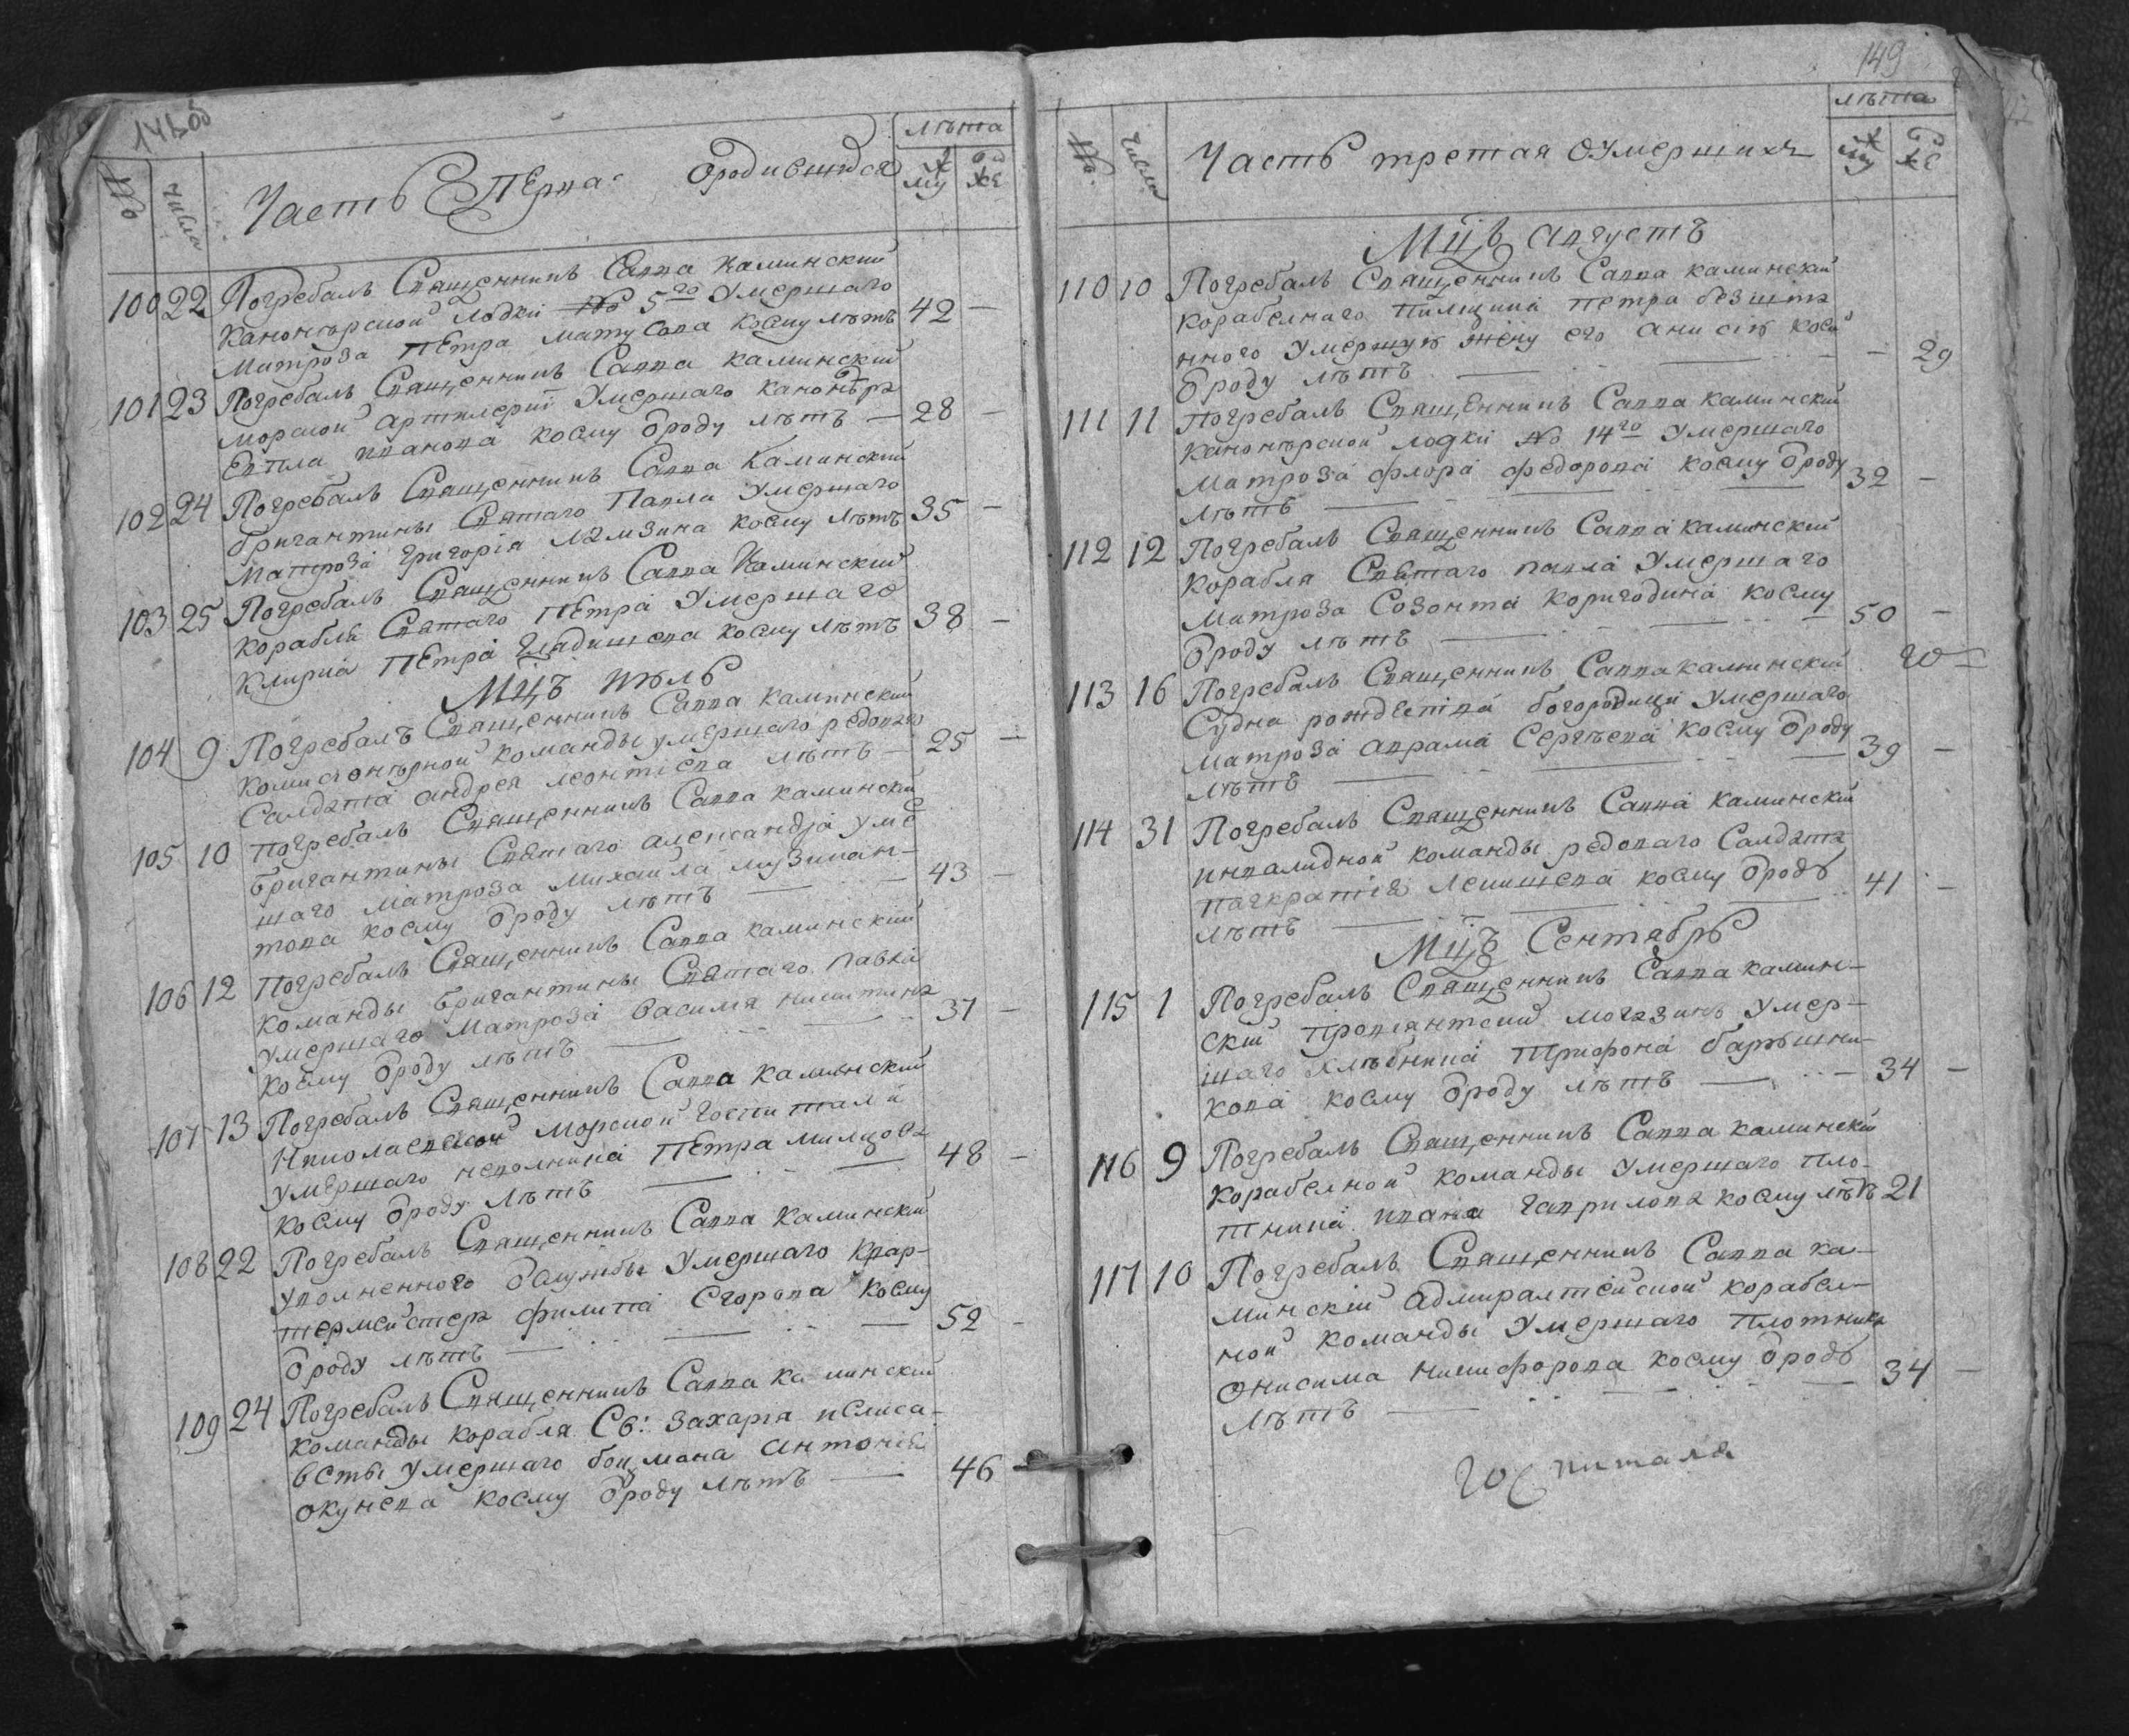 лѣта
№
числа
Часть Перва ородившихся
му
же
100 22 Погребалъ Священникъ Савва Каминский
Канонѣрской лодки № 5го Умершаго
Матроза Петра матусова коему лѣтъ 42 —
101 23 Погребалъ Священникъ Савва каминский
морской артилерии Умершаго канонѣра
Евпла иванова коему ѿроду лѣтъ — 28 —
102 24 Погребалъ Священникъ Савва Каминский
бригантины Святаго Павла Умершаго
Матроза григорія лямзина коему лѣтъ 35 —
103 25 Погребалъ Священникъ Савва Каминский
корабля Святаго Петра Умершаго
Клирка Петра Гладишева коему лѣтъ 38 —
Мцъ июль
104 9 Погребалъ Священникъ Савва каминский
комисионѣрной команды умершаго редоваго
Салдата андрея леонтіева лѣтъ — 25 —
105 10 погребалъ Священникъ Савва каминский
бригантины Святаго александра уме
шаго матроза михаила музикан-
това коему ѿроду лѣтъ — 43 —
106 12 Погребалъ Священникъ Савва каминский
команды бригантины Святаго павла
умершаго матроза василя никитина
коему ѿроду лѣтъ — 37 —
107 13 Погребалъ Священникъ Савва каминский
Николаевской морской госпитали
умершаго неполника Петра милцова
коему ѿроду лѣтъ — 48 —
108 22 Погребалъ Священникъ Савва каминский
уволненного ѿслужбы Умершаго квар-
термейстера филипа Егорова коему
ѿроду лѣтъ — 52 -
109 24 Погребалъ Священникъ Савва каминский
команды корабля Св: Захарія иЕлиса-
ветьі умершаго боцмана антонія
окунева коему ѿроду лѣтъ — 46 —
149
лѣта
№
числа
Часть третая ОУмершихъ
му
же
Мцъ Августъ
110 10 Погребалъ Священникъ Савва каминский
корабелнаго пилщика петра безшта
нного умершую жену его анисію коей
ѿроду лѣтъ — — 29
111 11 погребалъ Священникъ Савва каминский
канонѣрской лодки № 14го Умершаго
матроза флора федорова коему ѿроду
лѣтъ — 32 —
112 12 Погребалъ Священникъ Савва каминский
корабля Святаго павла Умершаго
матроза Созонта коригодина коему
ѿроду лѣтъ — 50 —
113 16 Погребалъ Священникъ Савва каминский
Судна рождества богородици Умершаго
матроза аврама Сергѣева коему ѿроду
лѣтъ — 39 —
114 31 Погребалъ Священникъ Савва каминский
инвалидной команды редоваго Салдата
панкратія Левишева коему ѿродъ
лѣтъ — 41 —
Мцъ Сентябрь
115 1 Погребалъ Священникъ Савва камин-
ский провиантский могазинъ Умер-
шаго хлѣбника Трифона барышни-
кова коему ѿроду лѣтъ — 34 —
116 9 Погребалъ Священникъ Савва каминский
корабелной команды Умершаго пло-
тника ивана гаврилова коему лѣтъ 21
117 10 Погребалъ Священникъ Савва ка-
минский адмиралтейской корабел-
ной команды Умершаго плотника
Онисима никифорова коему ѿродъ
лѣтъ — 34 —
госпиталя